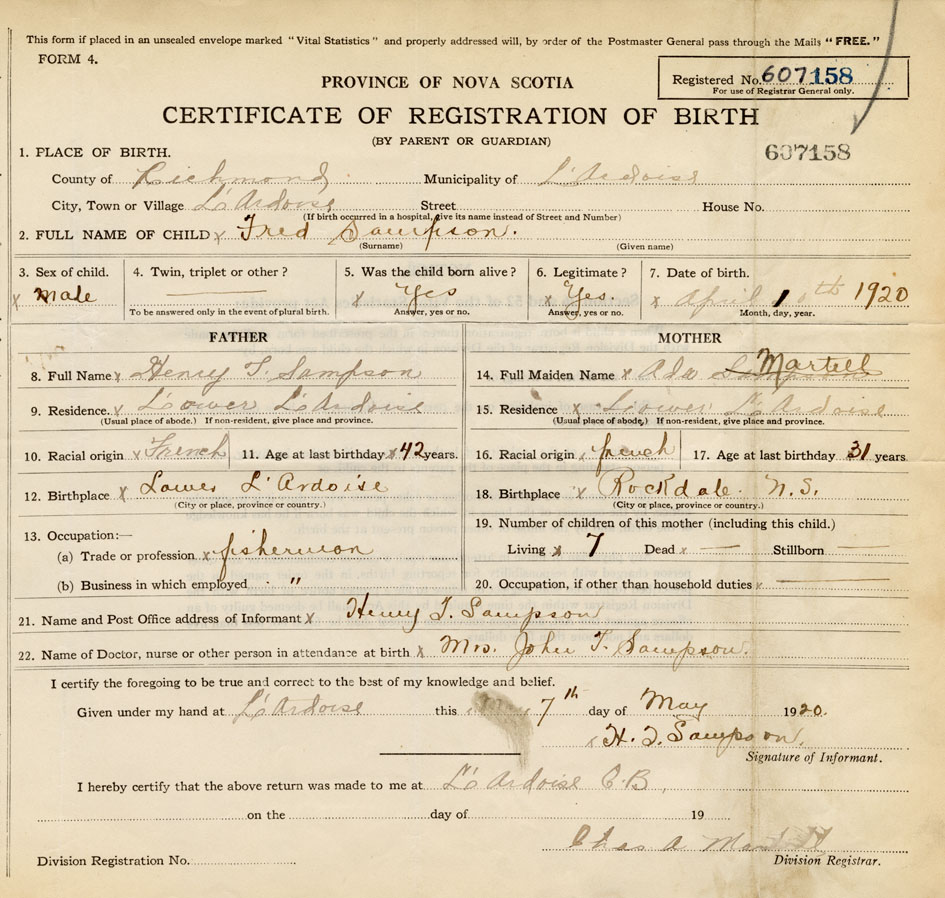 This form if placed in an unsealed envelope marked "Vital Statistics" and properly addressed will, by order of the Postmaster General pass through the Mails "FREE."
FORM 4.
Registered No. 607158
For use of Registrar General only.
PROVINCE OF NOVA SCOTIA
CERTIFICATE OF REGISTRATION OF BIRTH
(BY PARENT OR GUARDIAN)
607158
1. PLACE OF BIRTH.
County of Richmond Municipality of L'Ardoise
City, Town or Village L'Ardoise Street House No.
(If birth occurred in a hospital, give its name instead of Street and Number)
2. FULL NAME OF CHILD x Fred Sampson.
(Surname) (Given name)
3. Sex of child. 4. Twin, triplet or other? 5. Was the child born alive? 6. Legitimate? 7. Date of birth.
x male x Yes x Yes. x April 10th 1920
To be answered only in the event of plural birth. Answer, yes or no. Answer, yes or no. Month, day, year.
FATHER MOTHER
8. Full Name x Henry T. Sampson 14. Full Maiden Name x Ada Martell
9. Residence. x Lower L'Ardoise 15. Residence x Lower L'Ardoise
(Usual place of abode.) If non-resident, give place and province. (Usual place of abode,) If non-resident, give place and province.
10. Racial origin x French 11. Age at last birthday x 42 years. 16. Racial origin x french 17. Age at last birthday 31 years
12. Birthplace x Lower L'Ardoise 18. Birthplace x Rockdale. N.S.
(City or place, province or country.) (City or place, province or country.)
13. Occupation:— 19. Number of children of this mother (including this child.)
(a) Trade or profession x fisherman Living x 7 Dead x — Stillborn —
(b) Business in which employed " 20. Occupation, if other than household duties x —
21. Name and Post Office address of Informant x Henry T. Sampson
22. Name of Doctor, nurse or other person in attendance at birth x Mrs. John T. Sampson.
I certify the foregoing to be true and correct to the best of my knowledge and belief.
Given under my hand at L'Ardoise this 7th day of May 1920.
x H. T. Sampson.
Signature of Informant.
I hereby certify that the above return was made to me at L'Ardoise C.B,
on the day of 19
Chas A
Division Registration No. Division Registrar.